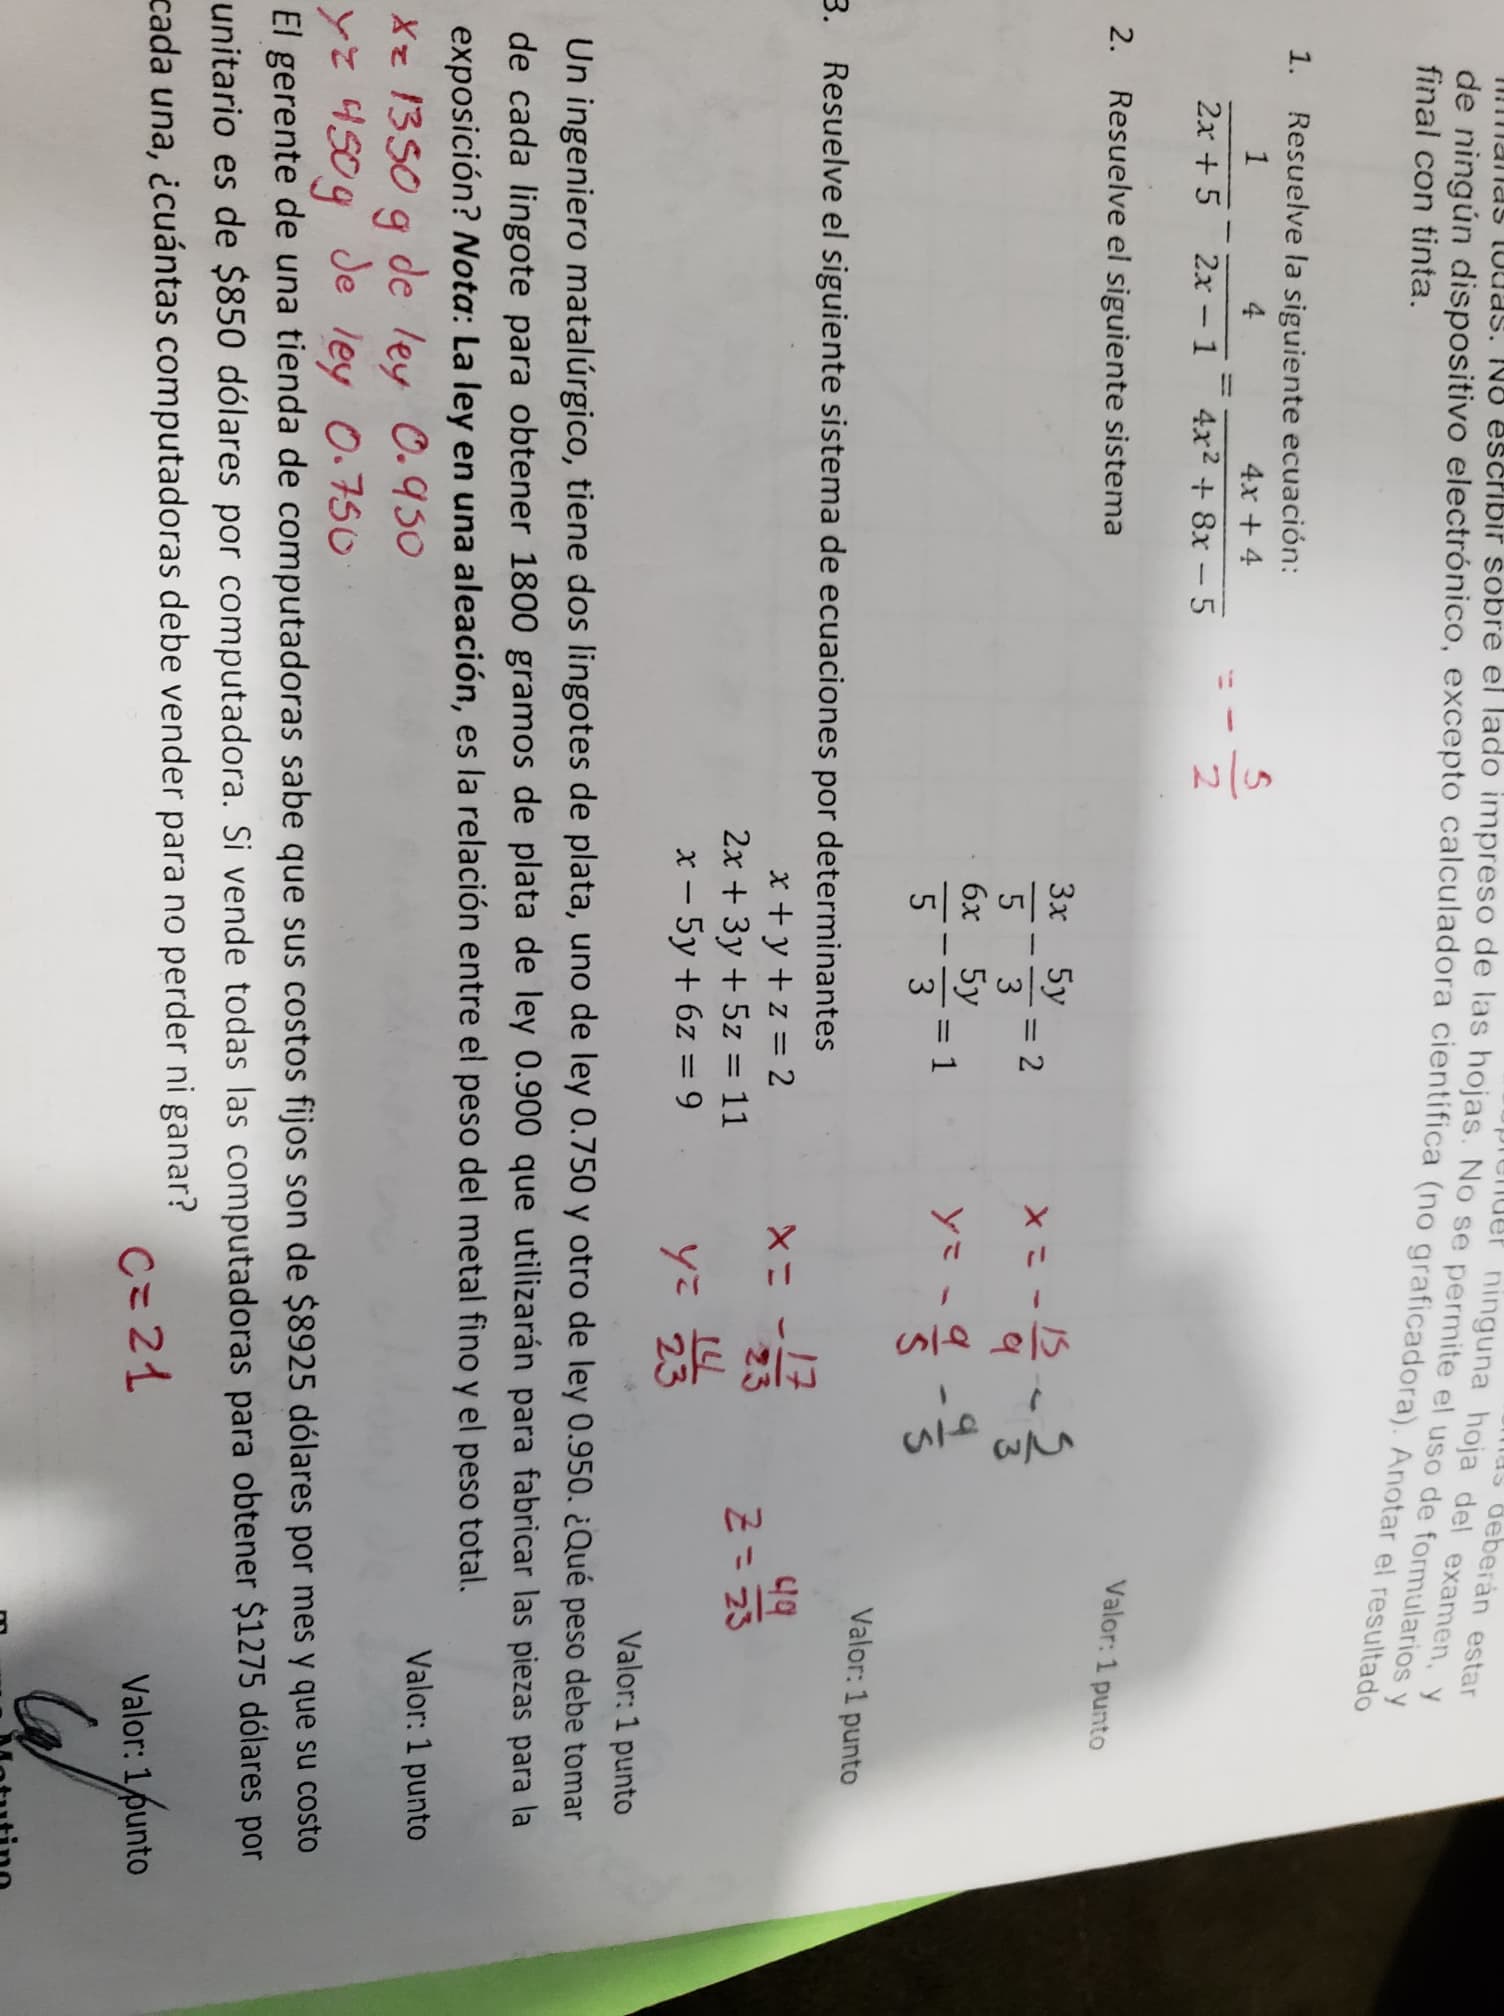 de ningún dispositivo electrónico, excepto calculadora científica (no graficadora). Anotar el resultado
final con tinta.
1. Resuelve la siguiente ecuación:
1/(2x + 5) − 4/(2x − 1) = (4x + 4)/(4x² + 8x − 5) = − 5/2
Valor: 1 punto
2. Resuelve el siguiente sistema
3x/5 − 5y/3 = 2 x = − 15/9 - 5/3
6x/5 − 5y/3 = 1 y = - 9/5 - 9/5
Valor: 1 punto
3. Resuelve el siguiente sistema de ecuaciones por determinantes
x + y + z = 2 x = - 17/23
2x + 3y + 5z = 11 z = 49/23
x − 5y + 6z = 9 y = 14/23
Valor: 1 punto
Un ingeniero matalúrgico, tiene dos lingotes de plata, uno de ley 0.750 y otro de ley 0.950. ¿Qué peso debe tomar
de cada lingote para obtener 1800 gramos de plata de ley 0.900 que utilizarán para fabricar las piezas para la
exposición? Nota: La ley en una aleación, es la relación entre el peso del metal fino y el peso total.
x = 1350 g de ley 0.950
Valor: 1 punto
y = 450g de ley 0.750
El gerente de una tienda de computadoras sabe que sus costos fijos son de $8925 dólares por mes y que su costo
unitario es de $850 dólares por computadora. Si vende todas las computadoras para obtener $1275 dólares por
cada una, ¿cuántas computadoras debe vender para no perder ni ganar?
C = 21
Valor: 1 punto